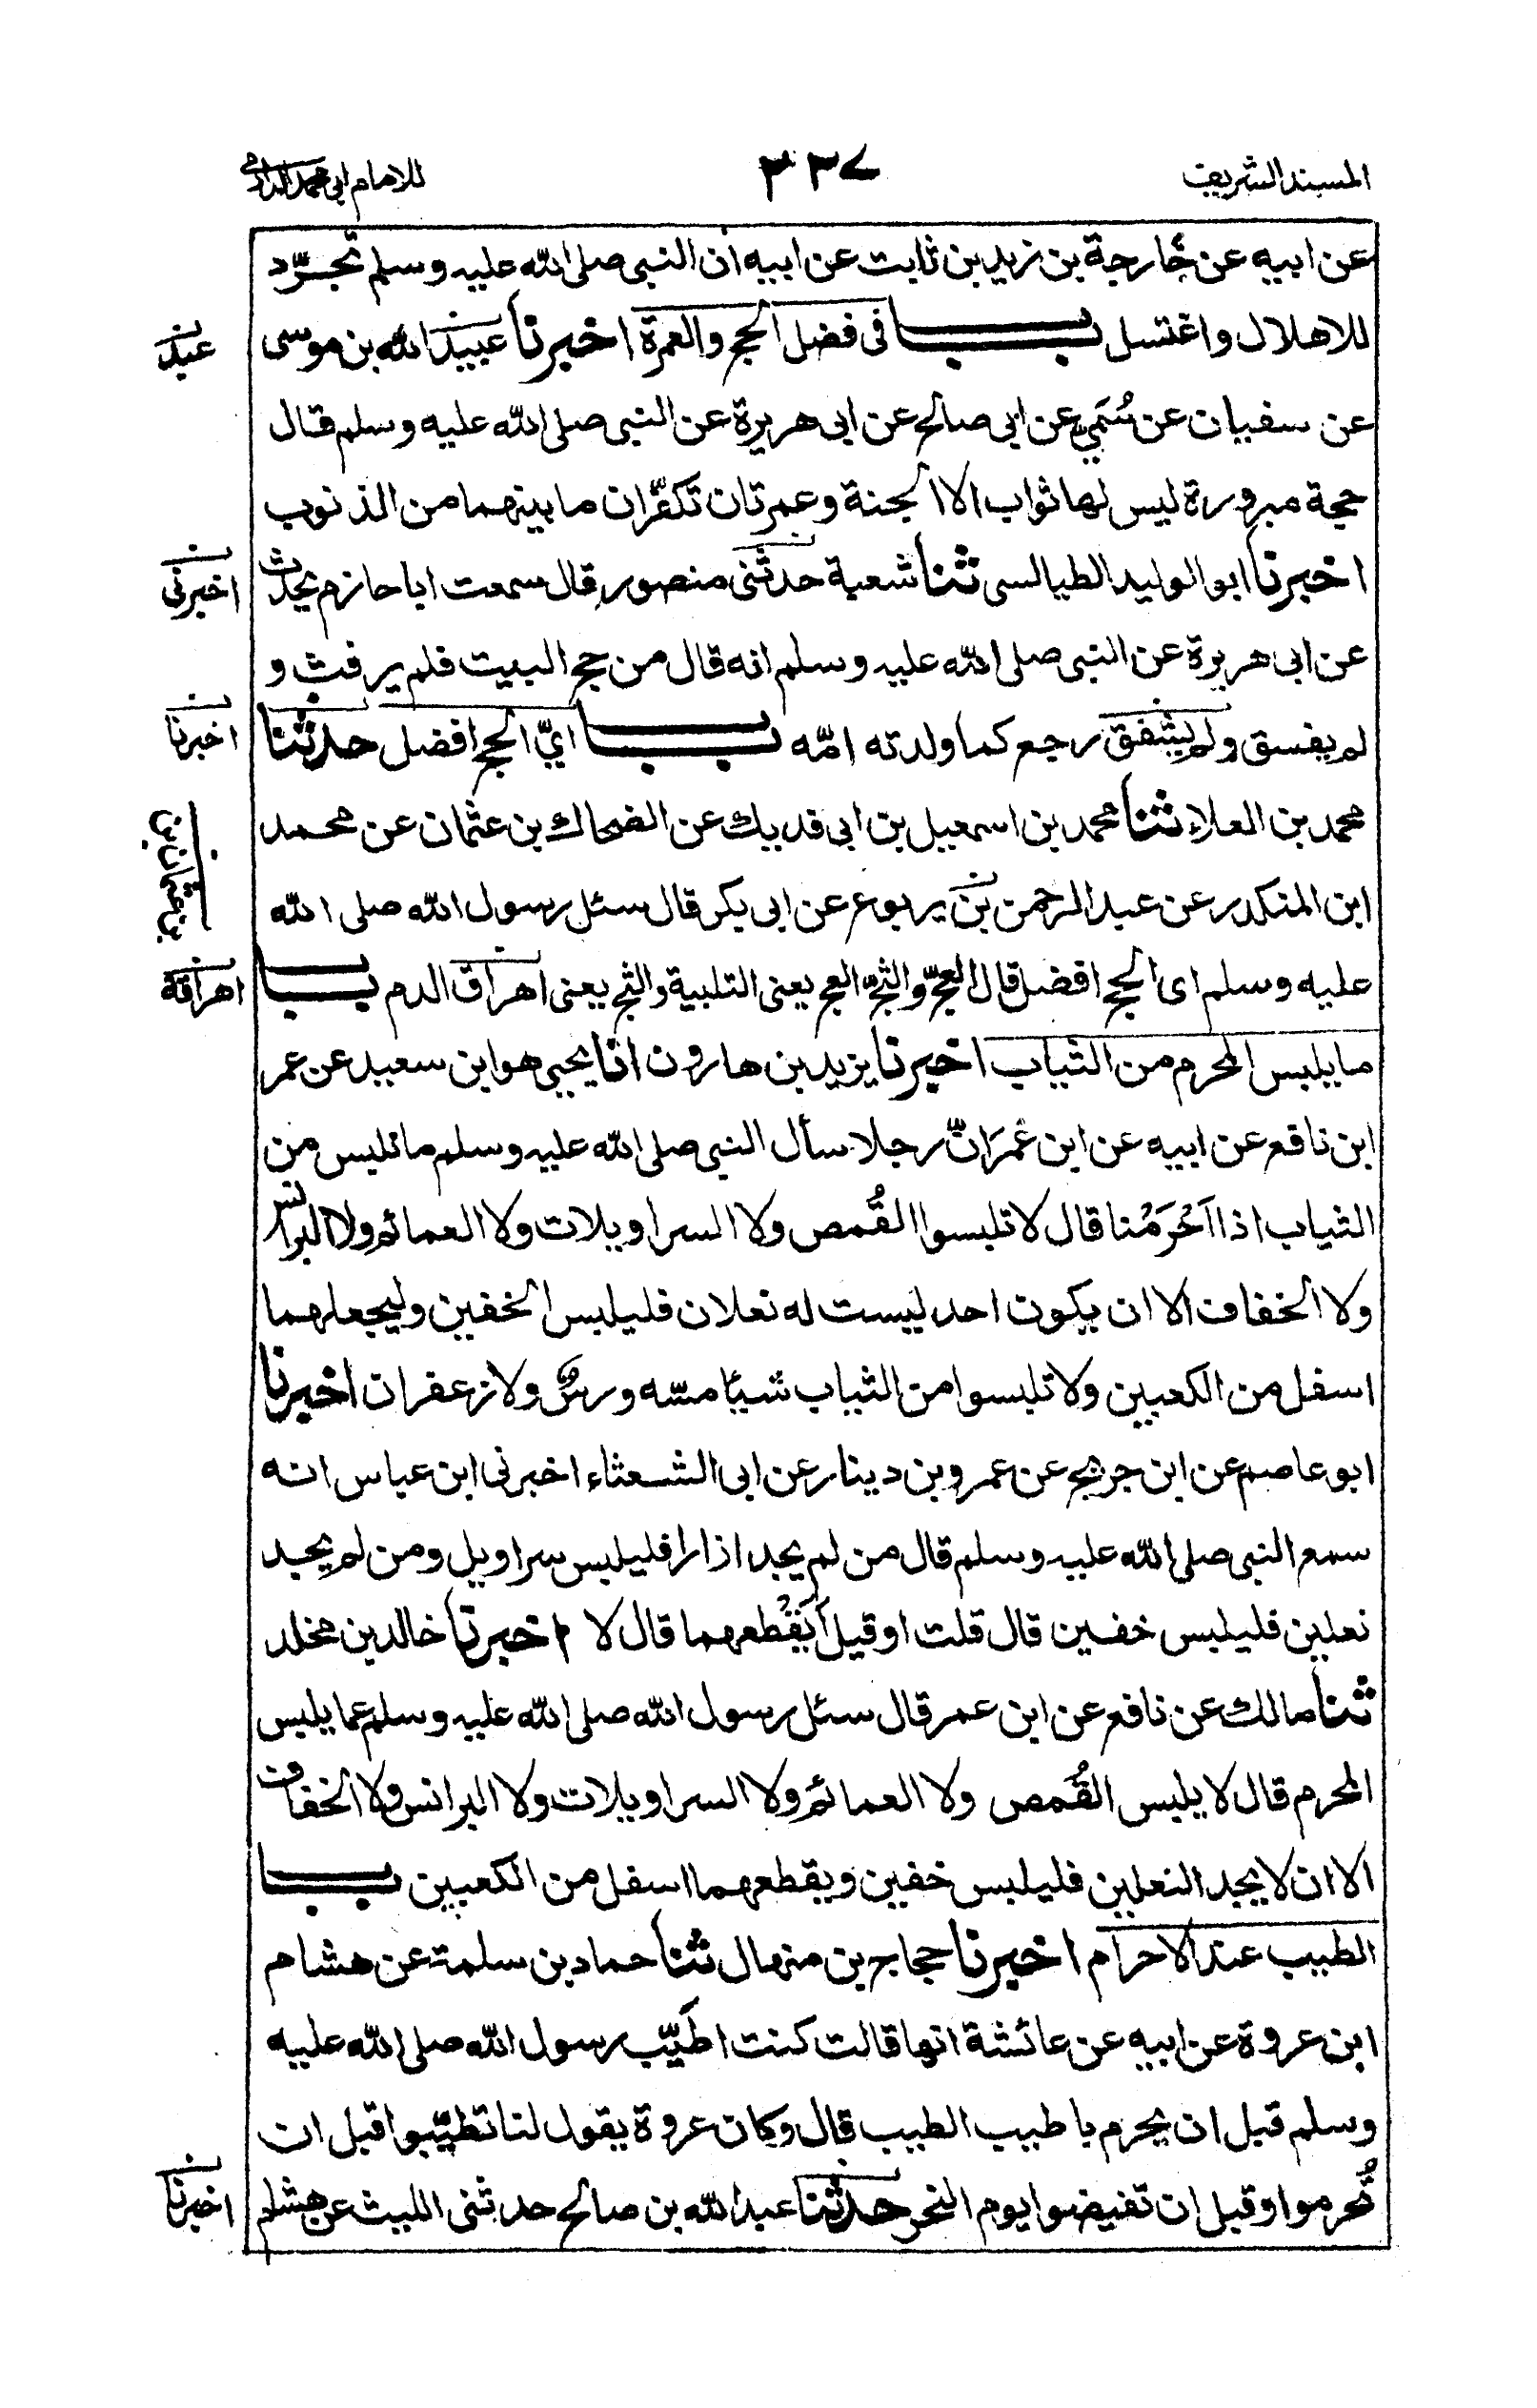 المسند الشريف
٣٣٧
للامام ابی محمد الدارمی
عن ابيه عن خارجة بن زيد بن ثابت عن ابيه ان النبی صلی الله عليه وسلم تجرّد
للاهلال واغتسل باب فی فضل الحج والعمرة اخبرنا عبيد الله بن موسی
عبد
عن سفيان عن سُمَیّ عن ابی صالح عن ابی هريرة عن النبی صلی الله عليه وسلم قال
حجة مبرورة ليس لها ثواب الا الجنة وعمرتان تكفّران ما بينهما من الذنوب
اخبرنا ابو الوليد الطيالسی ثنا شعبة حدثنی منصور قال سمعت ابا حازم يحدث
اخبرنی
عن ابی هريرة عن النبی صلی الله عليه وسلم انه قال من حج البيت فلم يرفث و
لم يفسق رجع كما ولدته امّه باب ایّ الحج افضل حدثنا
اخبرنا
محمد بن العلاء ثنا محمد بن اسمعيل بن ابی فديك عن الضحاك بن عثمان عن محمد
ابن المنكدر عن عبد الرحمن بن يربوع عن ابی بكر قال سئل رسول الله صلی الله
عليه وسلم ای الحج افضل قال العجّ والثجّ العج يعنی التلبية والثج يعنی اهراق الدم باب
اهراقة
ما يلبس المحرم من الثياب اخبرنا يزيد بن هارون انا يحيی هو ابن سعيد عن عمر
ابن نافع عن ابيه عن ابن عُمَرَ انّ رجلا سأل النبی صلی الله عليه وسلم ما نلبس من
الثياب اذا اَحْرَمْنا قال لا تلبسوا القُمص ولا السراويلات ولا العمائم ولا البرانس
ولا الخفاف الا ان يكون احد ليست له نعلان فليلبس الخفين وليجعلهما
اسفل من الكعبين ولا تلبسوا من الثياب شيئا مسّه ورسٌ ولا زعفران اخبرنا
ابو عاصم عن ابن جريج عن عمرو بن دينار عن ابی الشعثاء اخبرنی ابن عباس انه
سمع النبی صلی الله عليه وسلم قال من لم يجد ازارا فليلبس سراويل ومن لم يجد
نعلين فليلبس خفين قال قلت او قيل أيقطعهما قال لا اخبرنا خالد بن مخلد
ثنا مالك عن نافع عن ابن عمر قال سئل رسول الله صلی الله عليه وسلم عما يلبس
المحرم قال لا يلبس القُمص ولا العمائم ولا السراويلات ولا البرانس ولا الخفاف
الا ان لا يجد النعلين فليلبس خفين ويقطعهما اسفل من الكعبين باب
الطيب عند الاحرام اخبرنا حجاج بن منهال ثنا حماد بن سلمة عن هشام
ابن عروة عن ابيه عن عائشة انها قالت كنت اطيّب رسول الله صلی الله عليه
وسلم قبل ان يحرم باطيب الطيب قال وكان عروة يقول لنا تطيّبوا قبل ان
تُحرموا وقبل ان تفيضوا يوم النحر حدثنا عبد الله بن صالح حدثنی الليث عن هشام
اخبرنا